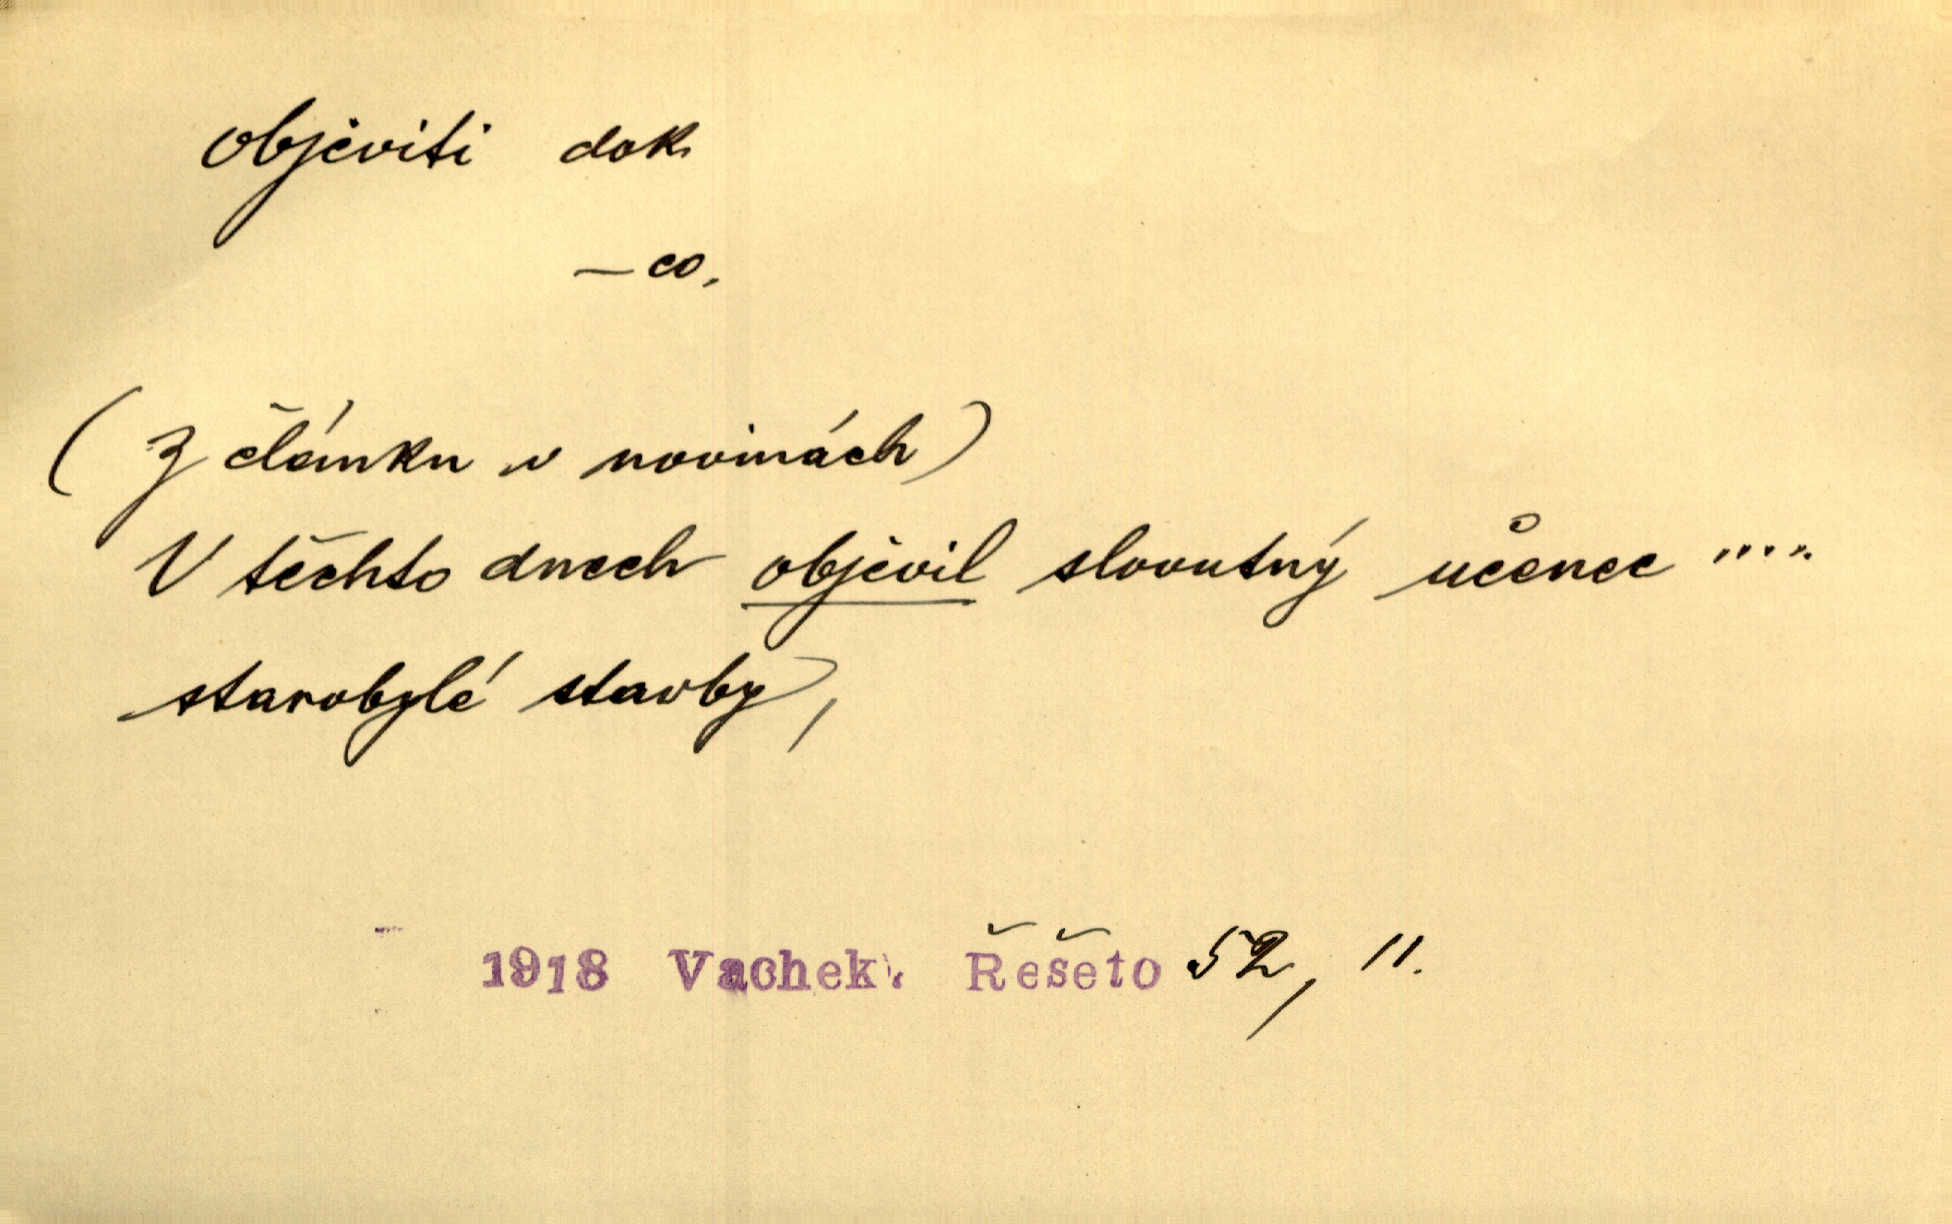 objeviti dok.
— co.
(Z článku v novinách)
V těchto dnech objevil slovutný učenec ....
starobylé stavby,
1918 Vachek. Řešeto 52, 11.